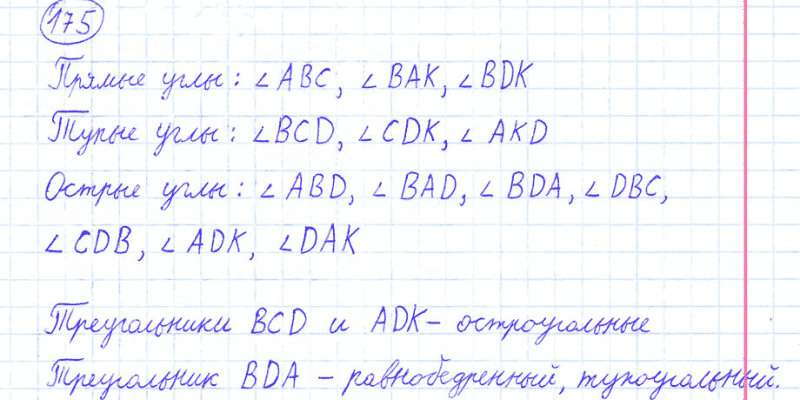 175
Прямые углы: ∠ABC, ∠BAK, ∠BDK
Тупые углы: ∠BCD, ∠CDK, ∠AKD
Острые углы: ∠ABD, ∠BAD, ∠BDA, ∠DBC,
∠CDB, ∠ADK, ∠DAK
Треугольники BCD и ADK – остроугольные
Треугольник BDA – равнобедренный, тупоугольный.